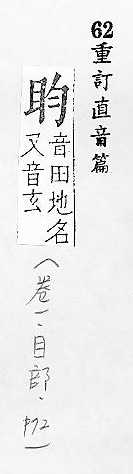 62重訂直音篇
盷
音田地名
又音玄
(卷一、目部、